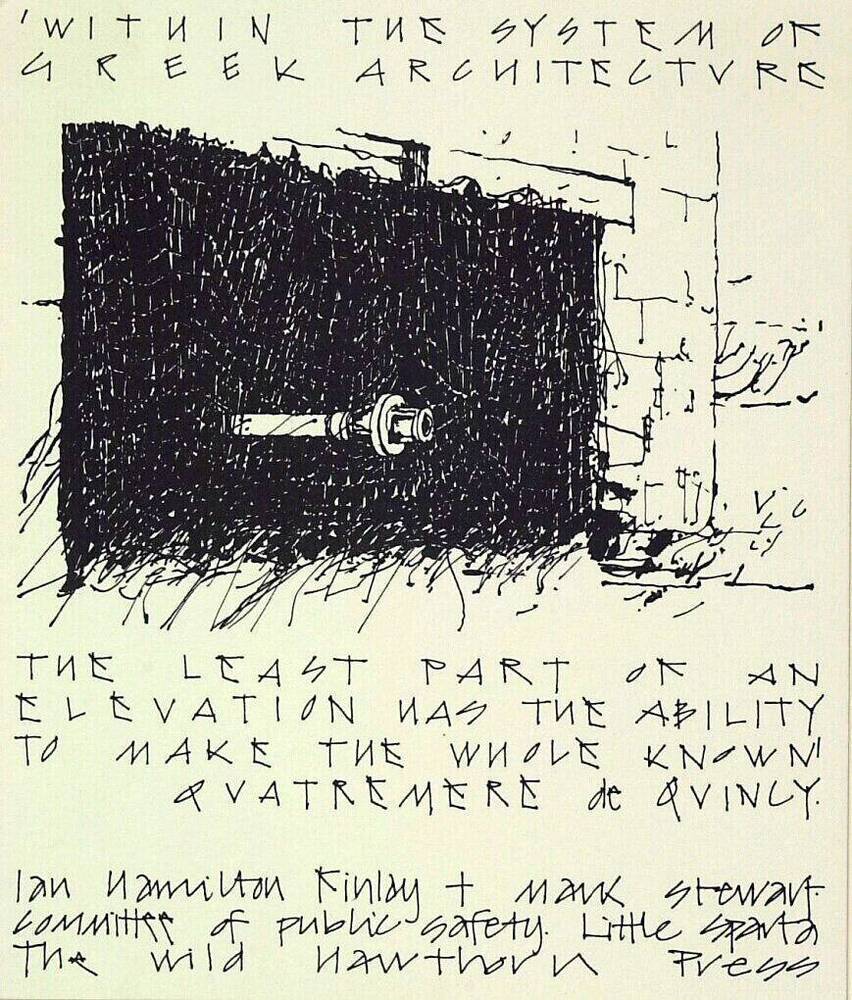 'WITHIN THE SYSTEM OF
GREEK ARCHITECTVRE
THE LEAST PART OF AN
ELEVATION HAS THE ABILITY
TO MAKE THE WHOLE KNOWN'
QVATREMERE de QVINCY.
Ian Hamilton Finlay + Mark Stewart.
committee of public safety. Little Sparta
The Wild Hawthorn Press